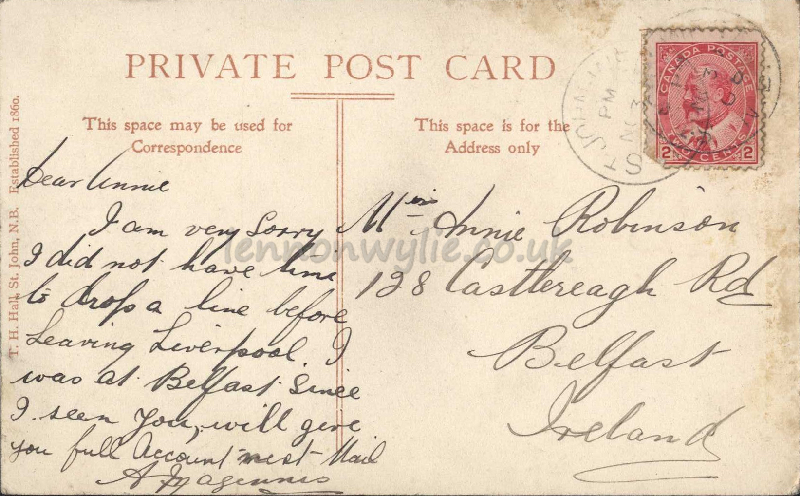 PRIVATE POST CARD
This space may be used for
Correspondence
This space is for the
Address only
T. H. Hall, St. John, N.B. Established 1860.
CANADA POSTAGE
2 CENTS 2
ST JOHN
PM
Dear Annie
I am very sorry
I did not have time
to drop a line before
Leaving Liverpool. I
was at Belfast since
I seen you, will give
you full Account next Mail
A Magennis
Miss Annie Robinson
128 Castlereagh Rd
Belfast
Ireland
lennonwylie.co.uk